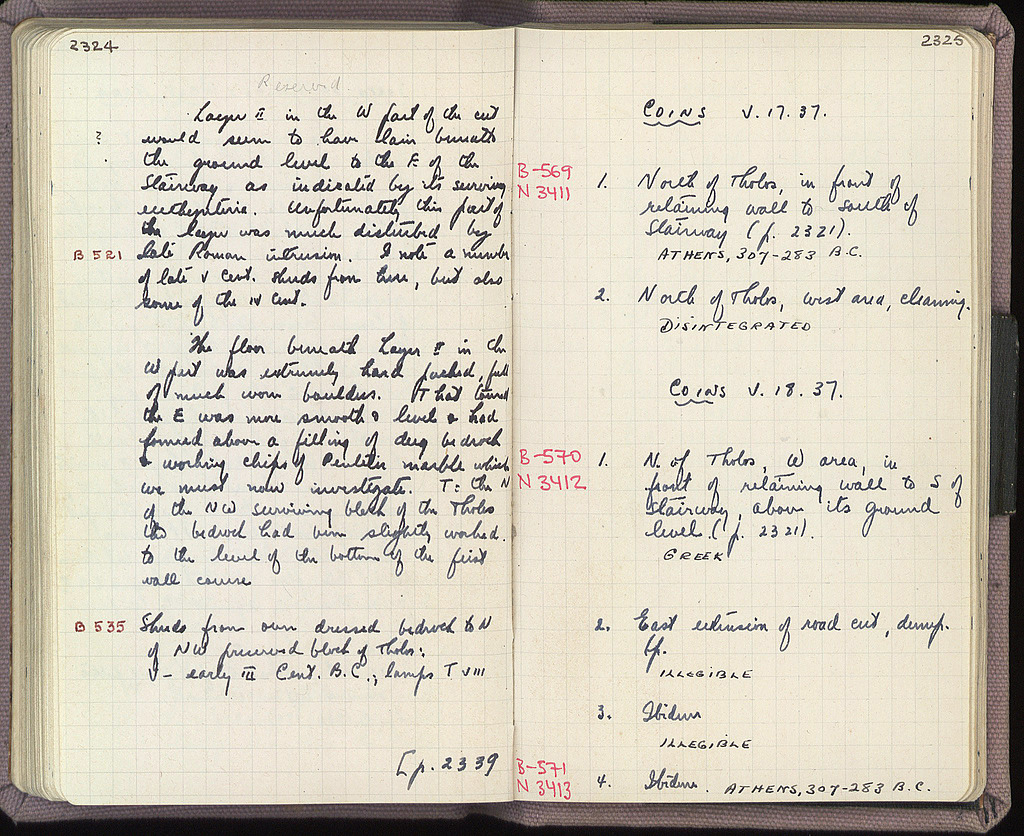 2324
Reserved.
Layer II in the W part of the cut
? would seem to have lain beneath
the ground level to the E of the
Stairway as indicated by its surviving
euthynteria. Unfortunately this part of
the layer was much disturbed by
B 521 late Roman intrusion. I note a number
of late V Cent. sherds from here, but also
some of the IV Cent.
The floor beneath Layer II in the
W part was extremely hard packed, full
of much worn boulders. That toward
the E was more smooth & level & had
formed above a filling of dug bedrock
& working chips of Pentelic marble which
we must now investigate. T: the N
of the NW surviving block of the Tholos
the bedrock had been slightly worked
to the level of the bottom of the first
wall course
B 535 Sherds from over dressed bedrock to N
of NW preserved block of Tholos:
V – early III Cent. B.C.; lamps T VIII
[p. 2339
2325
COINS V.17.37.
B-569
N 3411
1. North of Tholos, in front of
retaining wall to south of
Stairway (p. 2321).
ATHENS, 307-283 B.C.
2. North of Tholos, west area, cleaning.
DISINTEGRATED
COINS V.18.37.
B-570
N 3412
1. N. of Tholos, W area, in
front of retaining wall to S of
Stairway, above its ground
level. (p. 2321).
GREEK
2. East extension of road cut, dump.
ILLEGIBLE
3. Ibidem
ILLEGIBLE
B-571
N 3413
4. Ibidem. ATHENS, 307-283 B.C.